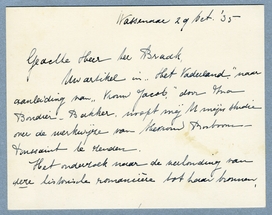 Wassenaar 29 Oct. '35
Geachte Heer ter Braak
Uw artikel in „Het Vaderland” naar
aanleiding van „Vrouw Jacob” door Ina
Boudier-Bakker, noopt mij U mijn studie
over de werkwijze van Mevrouw Bosboom-
Toussaint te zenden.
Het onderzoek naar de verhouding van
deze historische romancière tot haar bronnen,